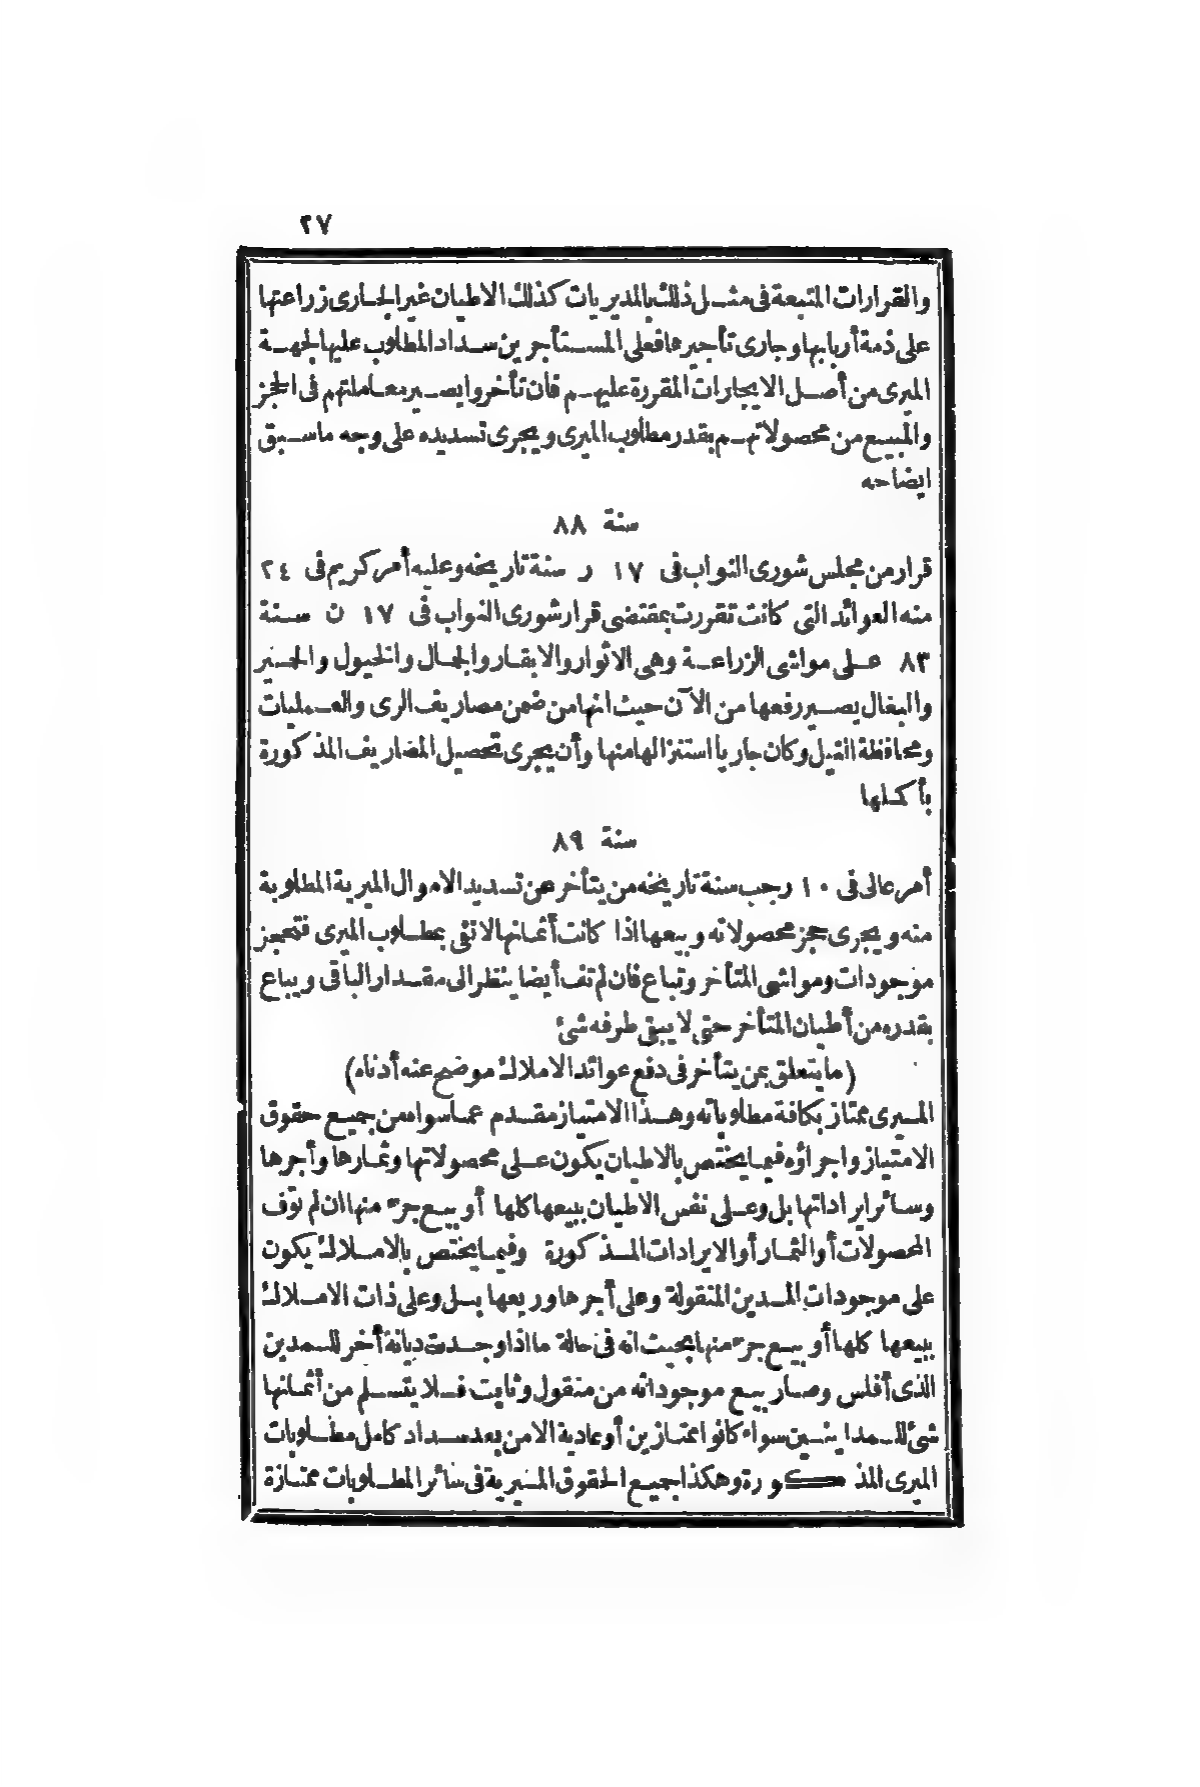 ٢٧
والقرارات المتبعة فى مثل ذلك بالمديريات كذلك الاطيان غير الجارى زراعتها
على ذمة أربابها وجارى تأجيرها فعلى المستأجرين سداد المطلوب عليها لجهة
الميرى من أصل الايجارات المقررة عليهم فان تأخروا يصير معاملتهم فى الحجز
والمبيع من محصولاتهم بقدر مطلوب الميرى ويجرى تسديده على وجه ماسبق
ايضاحه
سنة ٨٨
قرار من مجلس شورى النواب فى ١٧ ر سنة تاريخه وعليه أمر كريم فى ٢٤
منه العوائد التى كانت تقررت بمقتضى قرار شورى النواب فى ١٧ ن سنة
٨٣ على مواشى الزراعة وهى الاثوار والابقار والجمال والخيول والحمير
والبغال يصير رفعها من الآن حيث انها من ضمن مصاريف الرى والعمليات
ومحافظة النيل وكان جاريا استنزالها منها وأن يجرى تحصيل المصاريف المذكورة
بأكملها
سنة ٨٩
أمر عالى فى ١٠ رجب سنة تاريخه من يتأخر عن تسديد الاموال الميرية المطلوبة
منه ويجرى حجز محصولاته وبيعها اذا كانت أثمانها لاتفى بمطلوب الميرى فتحجز
موجودات ومواشى المتأخر وتباع فان لم تف أيضا ينظر الى مقدار الباقى ويباع
بقدره من أطيان المتأخر حتى لا يبقى طرفه شئ
(ما يتعلق بمن يتأخر فى دفع عوائد الاملاك موضح عنه أدناه)
الميرى ممتاز بكافة مطلوباته وهذا الامتياز مقدم عما سواه من جميع حقوق
الامتياز واجراؤه فيما يختص بالاطيان يكون على محصولاتها وثمارها وأجرها
وسائر ايراداتها بل وعلى نفس الاطيان ببيعها كلها أو بيع جزء منها ان لم توف
المحصولات أو الثمار أو الايرادات المذكورة وفيما يختص بالاملاك يكون
على موجودات المدين المنقولة وعلى أجرها وريعها بل وعلى ذات الاملاك
ببيعها كلها أو بيع جزء منها بحيث انه فى حالة ما اذا وجدت ديانة أخر للمدين
الذى أفلس وصار بيع موجوداته من منقول وثابت فلا يتسلم من أثمانها
شئ للمداينين سواء كانوا ممتازين أو عادية الامن بعد سداد كامل مطلوبات
الميرى المذكورة وهكذا جميع الحقوق الميرية فى سائر المطلوبات ممتازة